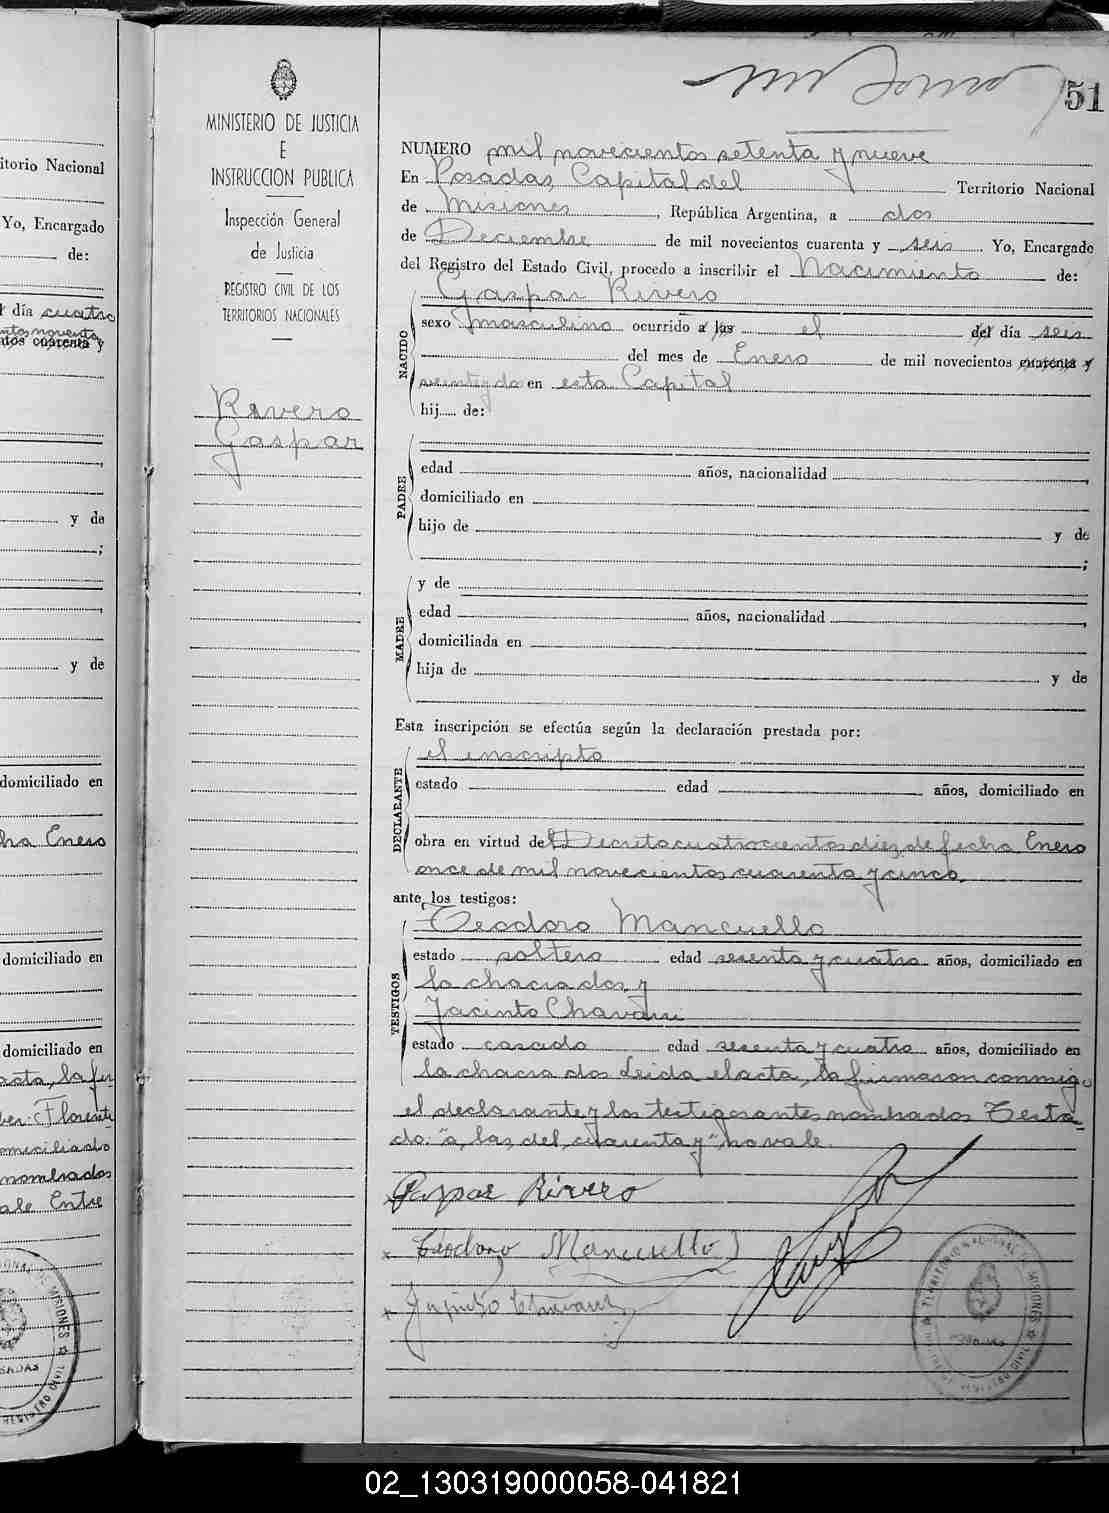 51
MINISTERIO DE JUSTICIA
E
INSTRUCCION PUBLICA
Inspección General
de Justicia
REGISTRO CIVIL DE LOS
TERRITORIOS NACIONALES
Rivero
Gaspar
NUMERO mil novecientos setenta y nueve
En Posadas, Capital del Territorio Nacional
de Misiones, República Argentina, a dos
de Deciembre de mil novecientos cuarenta y seis Yo, Encargado
del Registro del Estado Civil, procedo a inscribir el Nacimiento de:
Gaspar Rivero
NACIDO
sexo masculino ocurrido a las el del día seis
del mes de Enero de mil novecientos cuarenta y
en esta Capital
hij..... de:
PADRE
edad años, nacionalidad
domiciliado en
hijo de y de
;
MADRE
y de
edad años, nacionalidad
domiciliada en
hija de y de
Esta inscripción se efectúa según la declaración prestada por:
DECLARANTE
el inscripto
estado edad años, domiciliado en
obra en virtud del Decreto cuatrocientos diez de fecha Enero
once de mil novecientos cuarenta y cinco.
ante los testigos:
TESTIGOS
Teodoro Mancuello
estado soltero edad sesenta y cuatro años, domiciliado en
la chacra dos y
Jacinto
estado casado edad sesenta y cuatro años, domiciliado en
la chacra dos Leida el acta, la firmaron conmigo
el declarante y los testigos antes nombrados Testa-
do: "a, las, del, cuarenta y" no vale.
Gaspar Rivero
Teodoro Mancuello
itorio Nacional
Yo, Encargado
de:
día cuatro
y de
;
y de
domiciliado en
ha Enero
domiciliado en
domiciliado en
acta, la fir
Florente
omiciliado
nombrados
ale Entre
TERRITORIO NACIONAL DE MISIONES
POSADAS
02_130319000058-041821